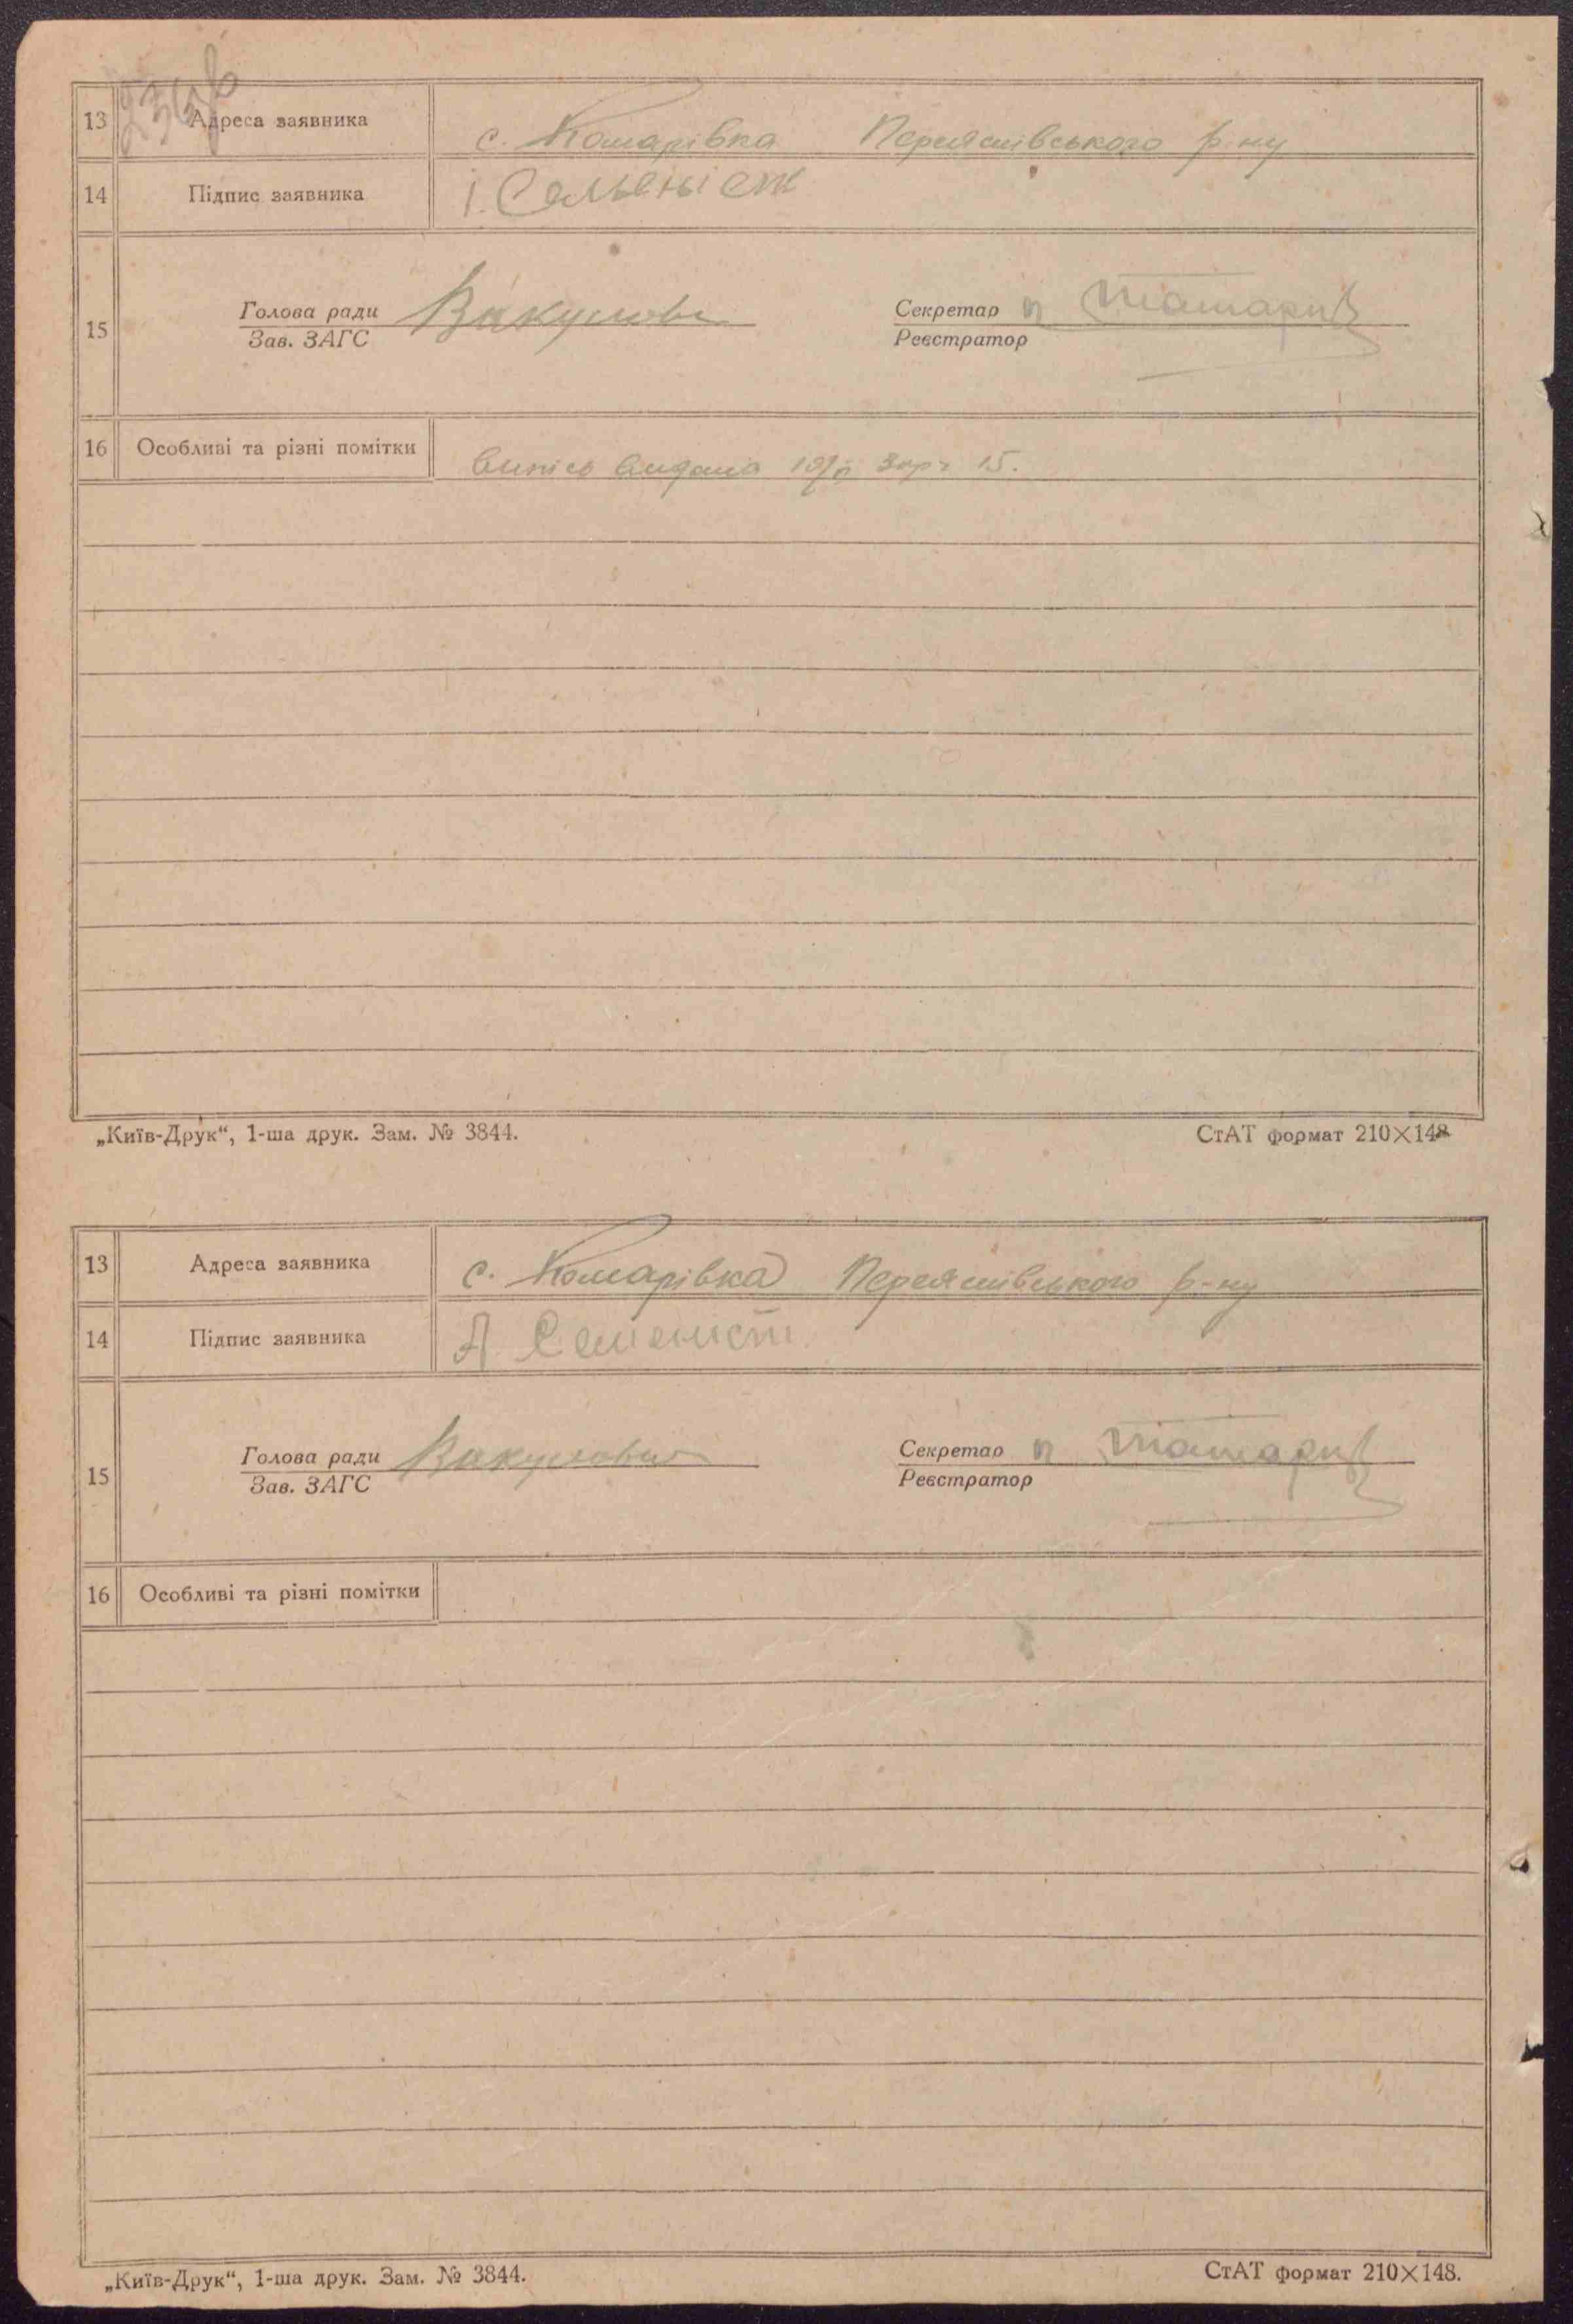 13 Адреса заявника с. Комарівка Переяслівського р-ну
14 Підпис заявника І.
15 Голова ради Секретар
Зав. ЗАГС Реєстратор
16 Особливі та різні помітки Випісь видана
„Київ-Друк“, 1-ша друк. Зам. № 3844. СтАТ формат 210×148
13 Адреса заявника с. Комарівка Переяслівського р-ну
14 Підпис заявника А
15 Голова ради Секретар
Зав. ЗАГС Реєстратор
16 Особливі та різні помітки
„Київ-Друк“, 1-ша друк. Зам. № 3844. СтАТ формат 210×148.